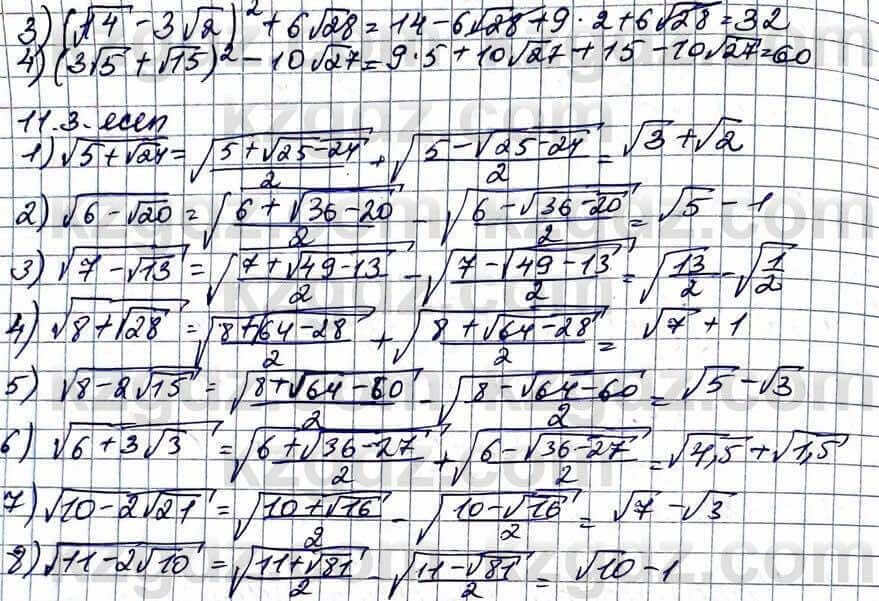 3) (√14 - 3√2)² + 6√28 = 14 - 6√28 + 9 · 2 + 6√28 = 32
4) (3√5 + √15)² - 10√27 = 9 · 5 + 10√27 + 15 - 10√27 = 60
11.3. есеп
1) √(5 + √24) = √((5 + √(25 - 24))/2) + √((5 - √(25 - 24))/2) = √3 + √2
2) √(6 - √20) = √((6 + √(36 - 20))/2) - √((6 - √(36 - 20))/2) = √5 - 1
3) √(7 - √13) = √((7 + √(49 - 13))/2) - √((7 - √(49 - 13))/2) = √(13/2) - √(1/2)
4) √(8 + √28) = √((8 + √(64 - 28))/2) + √((8 + √(64 - 28))/2) = √7 + 1
5) √(8 - 2√15) = √((8 + √(64 - 60))/2) - √((8 - √(64 - 60))/2) = √5 - √3
6) √(6 + 3√3) = √((6 + √(36 - 27))/2) + √((6 - √(36 - 27))/2) = √4,5 + √1,5
7) √(10 - 2√21) = √((10 + √16)/2) - √((10 - √16)/2) = √7 - √3
8) √(11 - 2√10) = √((11 + √81)/2) - √((11 - √81)/2) = √10 - 1
kzgdz.com